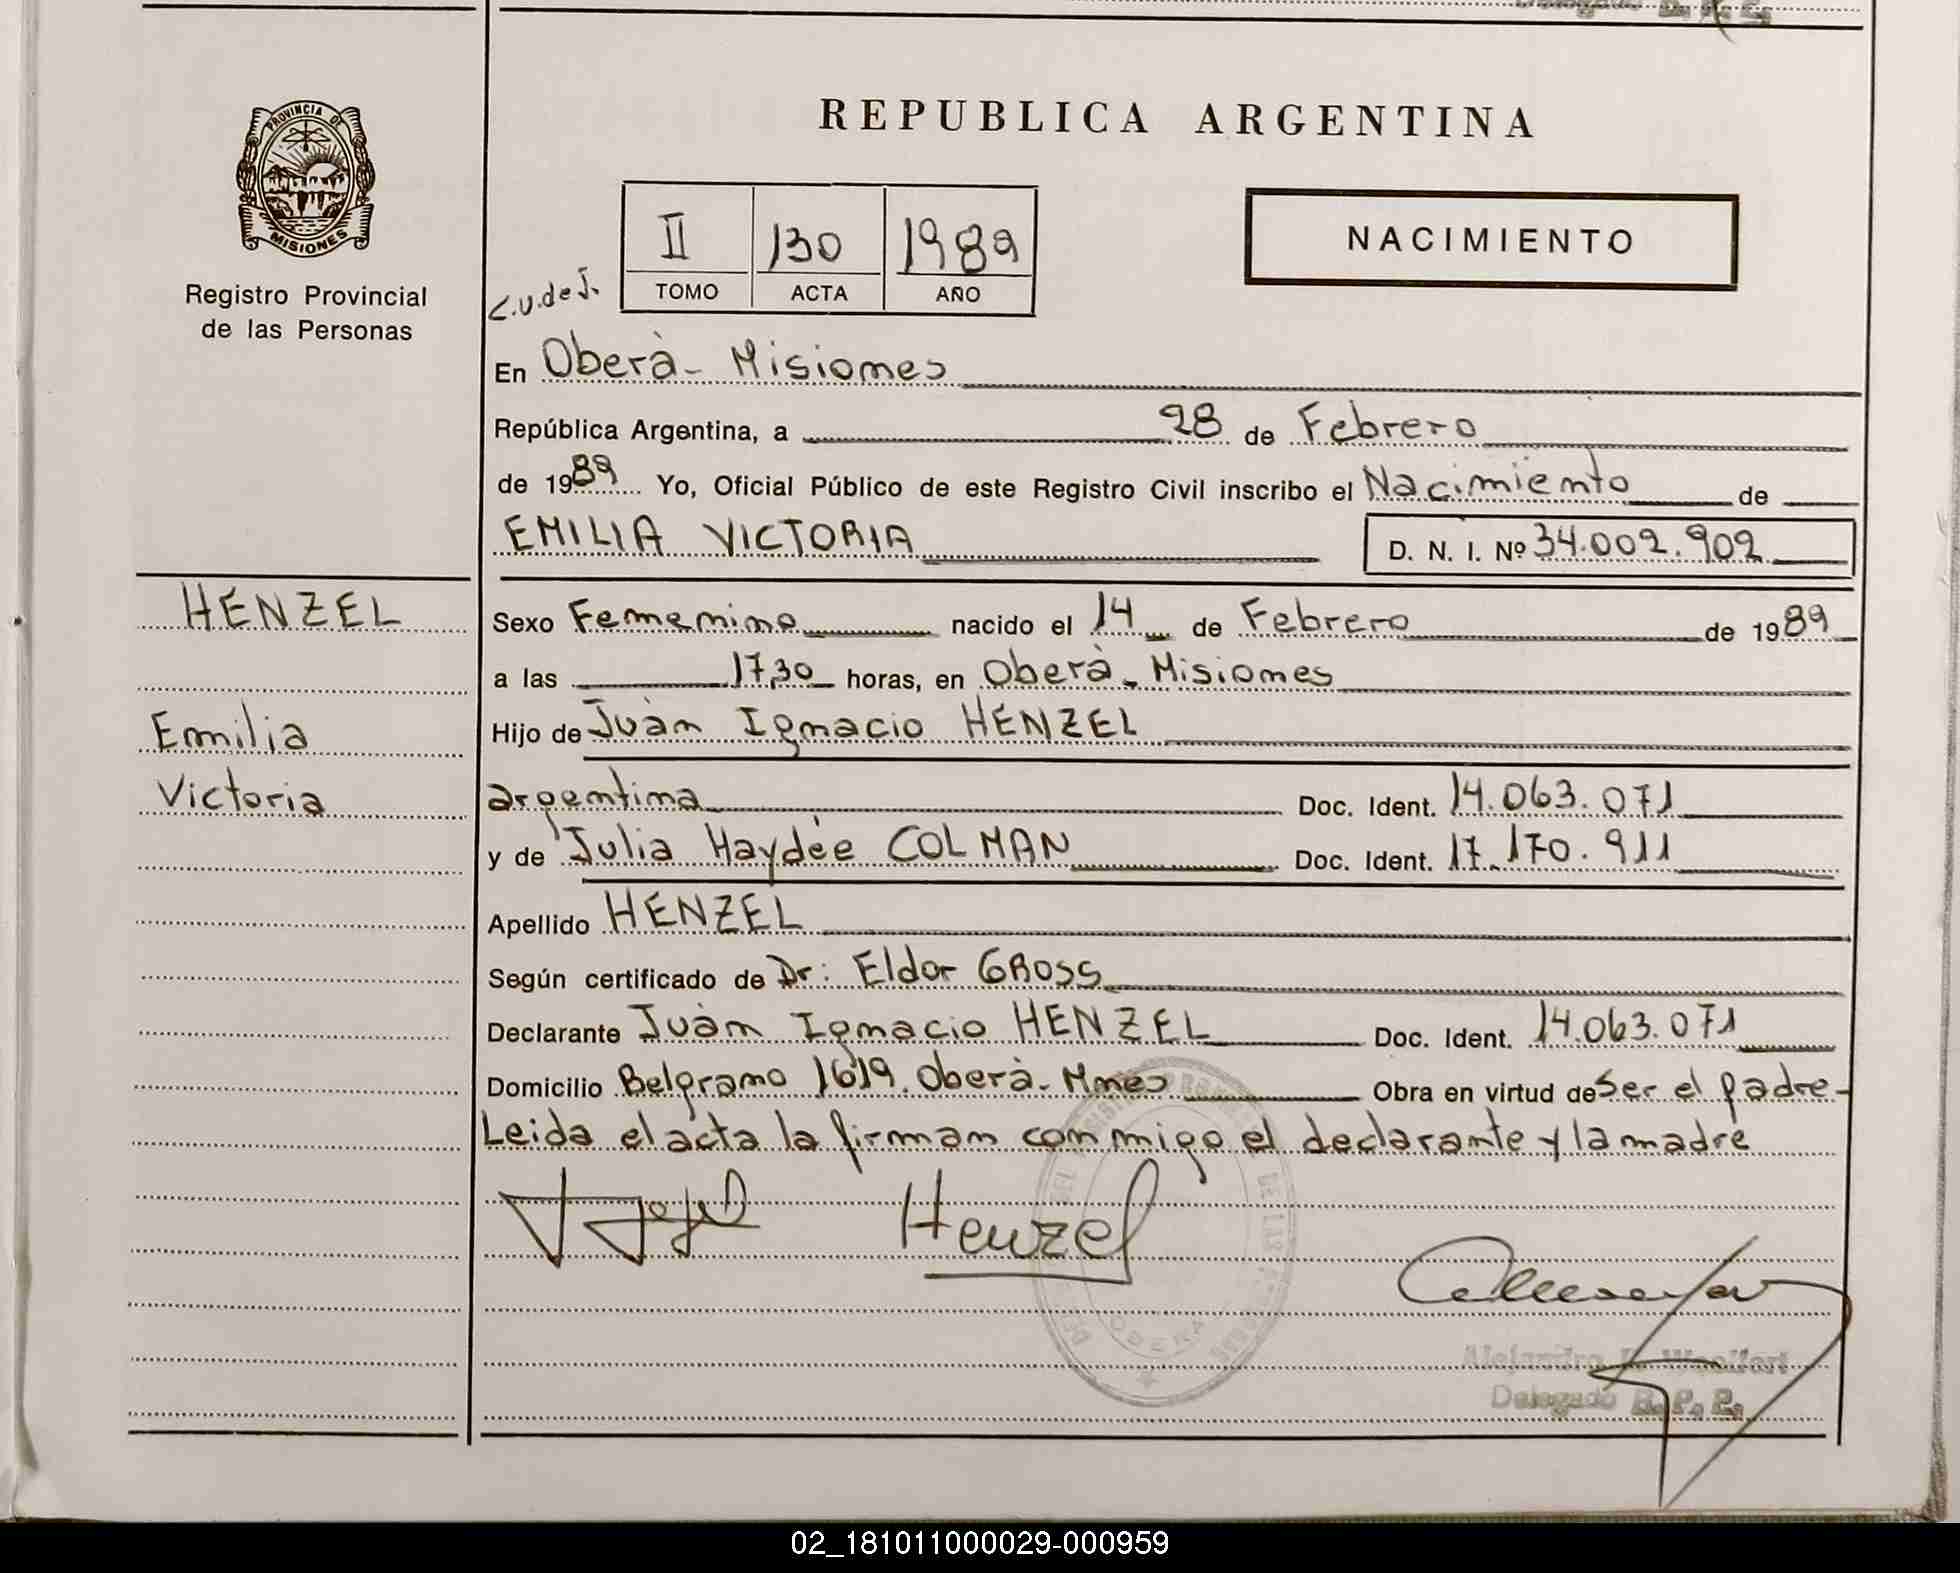 Delegado R. P. P.
PROVINCIA DE
MISIONES
Registro Provincial
de las Personas
HENZEL
Emilia
Victoria
REPUBLICA ARGENTINA
II 130 1989
TOMO ACTA AÑO
NACIMIENTO
C.U.de J.
En Oberà - Misiones
República Argentina, a 28 de Febrero
de 1989 Yo, Oficial Público de este Registro Civil inscribo el Nacimiento de
EMILIA VICTORIA D. N. I. Nº 34.002.902
Sexo Femenino nacido el 14 de Febrero de 1989
a las 17,30 horas, en Oberà - Misiones
Hijo de Juàn Ignacio HENZEL
argentina Doc. Ident. 14.063.071
y de Julia Haydèe COLMAN Doc. Ident. 17.170.911
Apellido HENZEL
Según certificado de Dr: Eldor GROSS
Declarante Juàn Ignacio HENZEL Doc. Ident. 14.063.071
Domicilio Belgrano 1619. Oberà - Mnes Obra en virtud de Ser el padre -
Leida el acta la firman conmigo el declarante y la madre
Henzel
DE LAS
OBERA
Delegado R. P. P.
02_181011000029-000959